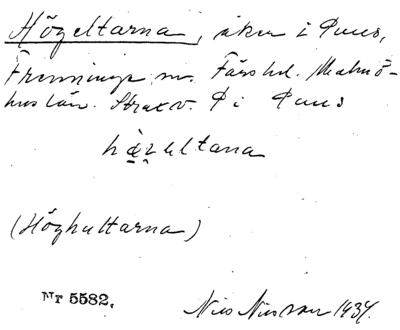 Högeltarna, åker i
Frenninge sn. Färs hd. Malmö-
hus län. Strax v.
(Höghultarna)
Nr 5582.
Nils Nilsson 1934.